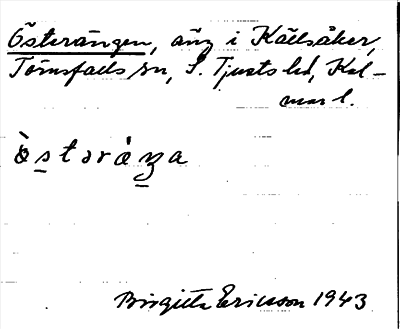 Österängen, äng i Källsåker,
Törnsfalls sn, S. Tjusts hd, Kal-
mar l.
östəräŋa
Birgitta Ericsson 1943